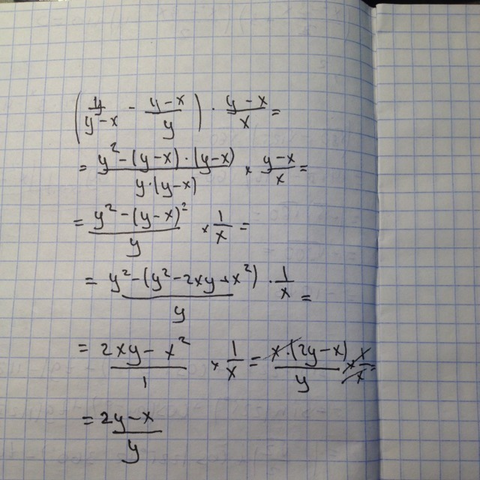 (y/(y-x) - (y-x)/y) · (y-x)/x =
= (y²-(y-x)·(y-x))/(y·(y-x)) × (y-x)/x =
= (y²-(y-x)²)/y × 1/x =
= (y²-(y²-2xy+x²))/y · 1/x =
= (2xy-x²)/1 × 1/x = (x·(2y-x))/y × x/x =
= (2y-x)/y